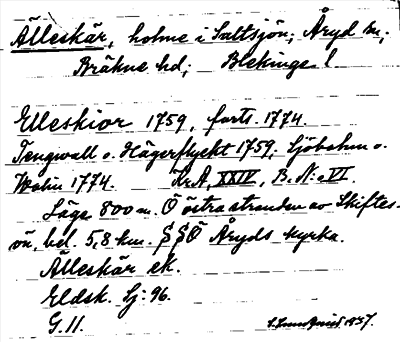 Älleskär, holme i Saltsjön; Åryd sn;
Bräkne hd; Blekinge l.
Elleskior 1759, forts. 1774.
Tengwall o. Hägerflyckt 1759; Sjöbohm o.
Walin 1774. KrA, XXIV, B. N:o VI.
Läge 800 m. Ö östra stranden av Skiftes-
ön, bel. 5,8 km. SSÖ Åryds kyrka.
Älleskär ek.
Eldsk. Sj: 96.
G. 11.
1937.